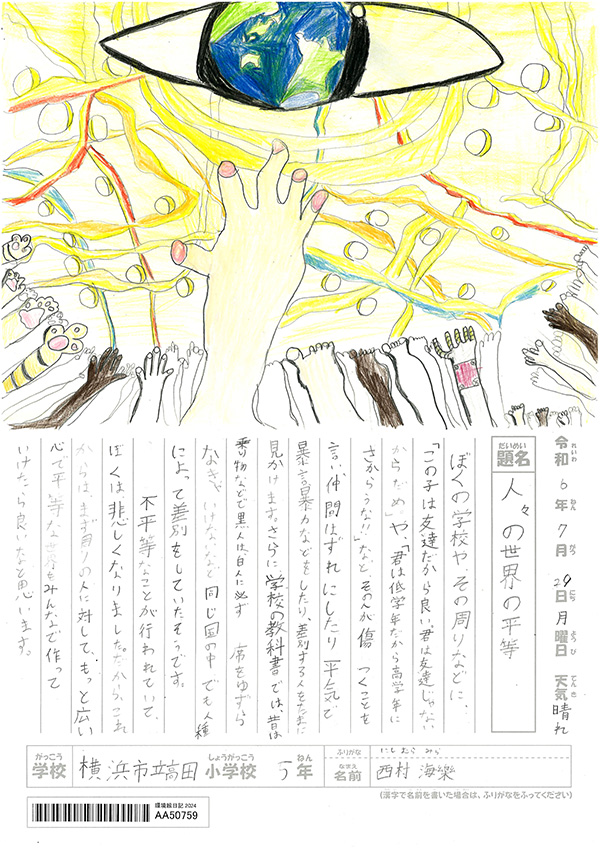 令和6年7月29日月曜日 天気 晴れ
れいわ ねん がつ にち ようび てんき
だいめい
題名 人々の世界の平等
ぼくの学校や、その周りなどに、
「この子は友達だから良い。君は友達じゃない
からだめ」や、「君は低学年だから高学年に
さからうな!!」など その人が傷つくことを
言い仲間はずれにしたり 平気で
暴言暴力などをしたり、差別する人をたまに
見かけます。さらに、学校の教科書では、昔は
乗り物などで黒人は、白人に必ず 席をゆずら
なきゃいけないなど 同じ国の中でも人種
によって差別をしていたそうです。
不平等なことが行われていて、
ぼくは、悲しくなりました。だから、これ
からは、まず周りの人に対して、もっと広い
心で平等な世界をみんなで作って
いけたら良いなと思います。
がっこう しょうがっこう ねん
学校 横浜市立高田小学校 5年
ふりがな にしむら みら
なまえ
名前 西村 海樂
(漢字で名前を書いた場合は、ふりがなをふってください)
環境絵日記 2024
AA50759